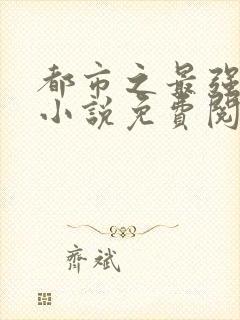 都市之最强
小説免費閱
齊斌